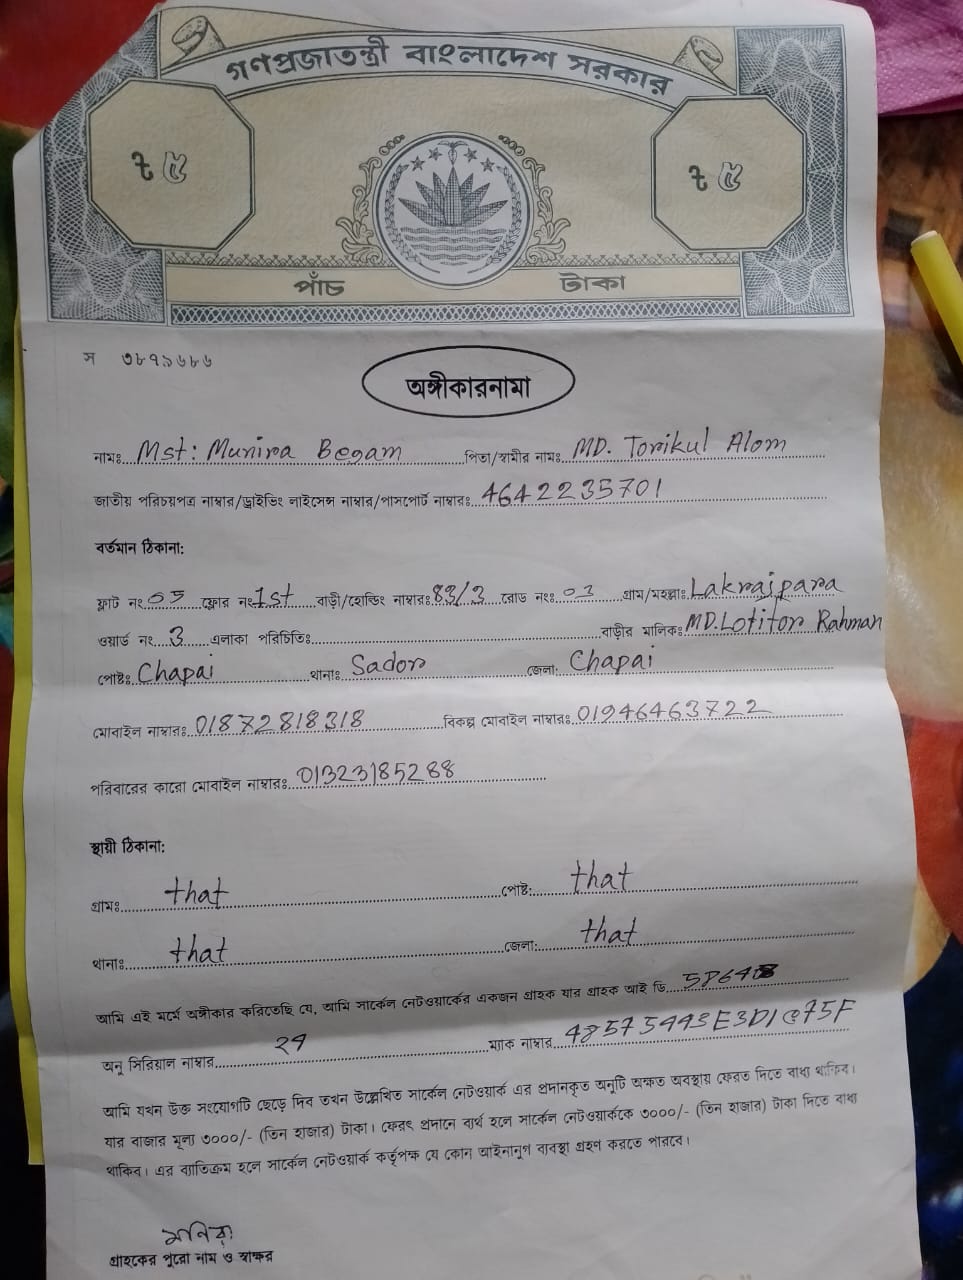 গণপ্রজাতন্ত্রী বাংলাদেশ সরকার
৳ ৫ ৳ ৫
পাঁচ টাকা
স ৩৮৭৯৬৮৬
অঙ্গীকারনামা
নামঃ Mst: Munira Begam পিতা/স্বামীর নামঃ MD. Torikul Alom
জাতীয় পরিচয়পত্র নাম্বার/ড্রাইভিং লাইসেন্স নাম্বার/পাসপোর্ট নাম্বারঃ 4642235701
বর্তমান ঠিকানা:
ফ্লাট নং 05 ফ্লোর নং 1st বাড়ী/হোল্ডিং নাম্বারঃ 83/3 রোড নংঃ 03 গ্রাম/মহল্লাঃ Lakraipara
ওয়ার্ড নং 3 এলাকা পরিচিতিঃ বাড়ীর মালিকঃ MD. Lotifor Rahman
পোষ্টঃ Chapai থানাঃ Sador জেলা: Chapai
মোবাইল নাম্বারঃ 01872818318 বিকল্প মোবাইল নাম্বারঃ 01946463722
পরিবারের কারো মোবাইল নাম্বারঃ 01323185288
স্থায়ী ঠিকানা:
গ্রামঃ that পোষ্ট: that
থানাঃ that জেলা: that
আমি এই মর্মে অঙ্গীকার করিতেছি যে, আমি সার্কেল নেটওয়ার্কের একজন গ্রাহক যার গ্রাহক আই ডি
অনু সিরিয়াল নাম্বার ম্যাক নাম্বার
আমি যখন উক্ত সংযোগটি ছেড়ে দিব তখন উল্লেখিত সার্কেল নেটওয়ার্ক এর প্রদানকৃত অনুটি অক্ষত অবস্থায় ফেরত দিতে বাধ্য থাকিব।
যার বাজার মূল্য ৩০০০/- (তিন হাজার) টাকা। ফেরৎ প্রদানে ব্যর্থ হলে সার্কেল নেটওয়ার্ককে ৩০০০/- (তিন হাজার) টাকা দিতে বাধ্য
থাকিব। এর ব্যতিক্রম হলে সার্কেল নেটওয়ার্ক কর্তৃপক্ষ যে কোন আইনানুগ ব্যবস্থা গ্রহণ করতে পারবে।
মনিরা
গ্রাহকের পুরো নাম ও স্বাক্ষর